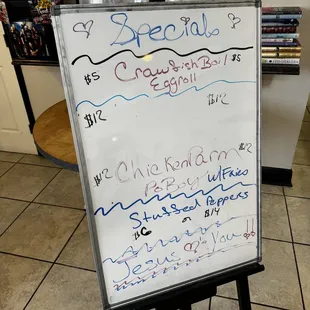 Specials
$5 Crawfish Boil $5
Eggroll
$12 $12
$12 Chicken Parm $12
PoBoy w/Fries
Stuffed Peppers
$6 or $14
Jesus ♡'s You!!